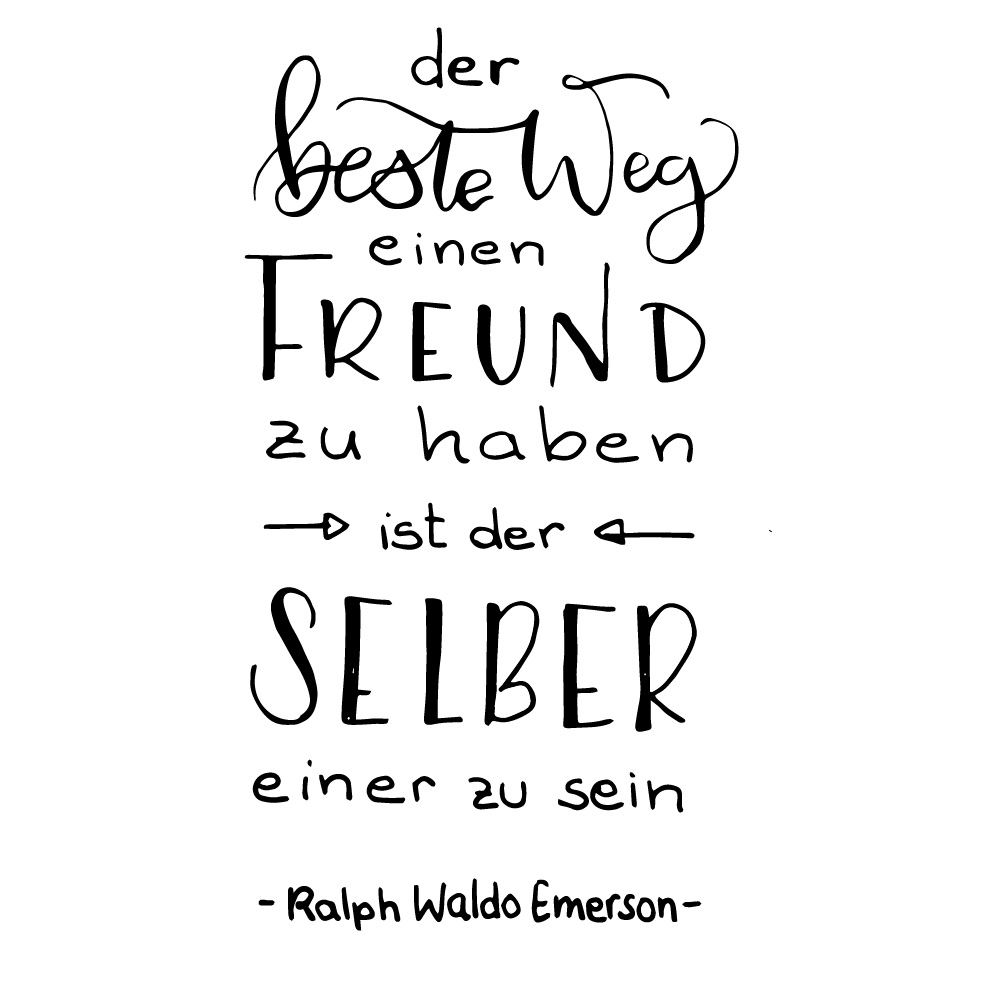 der
beste Weg
einen
FREUND
zu haben
ist der
SELBER
einer zu sein
- Ralph Waldo Emerson -